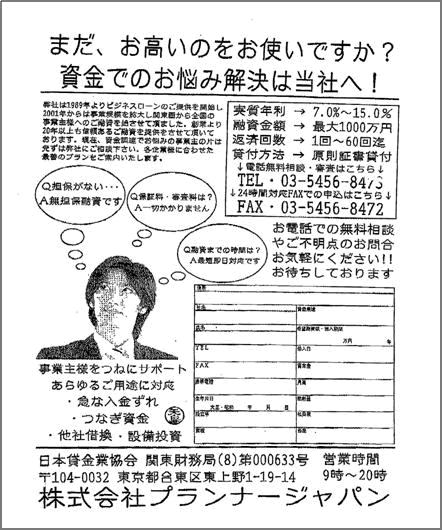 まだ、お高いのをお使いですか?
資金でのお悩み解決は当社へ!
弊社は1989年よりビジネスローンのご提供を開始し
2001年からは事業規模を拡大し関東圏から全国の
事業主様へのご融資を始させて頂ました。創業より
20年以上も信頼あるご融資を提供をさせて頂いて
おります。現在、資金調達でお悩みの事業主の方は
先ずは弊社にご相談下さい。各企業様に合わせた
最善のプランをご案内いたします。
実質年利 → 7.0%~15.0%
融資金額 → 最大1000万円
返済回数 → 1回~60回迄
貸付方法 → 原則証書貸付
↓電話無料相談・審査はこちら↓
TEL・03-5456-847
↓24時間対応FAXでの申込はこちら↓
FAX・03-5456-8472
Q担保がない・・・
A無担保融資です
Q保証料・審査料は?
A一切かかりません
Q融資までの時間は?
A最短即日対応です
お電話での無料相談
やご不明点のお問合
お気軽にください!!
お待ちしております
事業主様をつねにサポート
あらゆるご用途に対応
・急な入金ずれ
・つなぎ資金
・他社借換・設備投資
住所
社名
資金使途
氏名
希望融資額・借入期間
万円 年
TEL
借入日
FAX
資本金
携帯電話
月商
生年月日
大正・昭和 年 月 日
日本貸金業協会 関東財務局(8)第000633号
営業時間
〒104-0032 東京都台東区東上野1-19-14
9時~20時
株式会社プランナージャパン